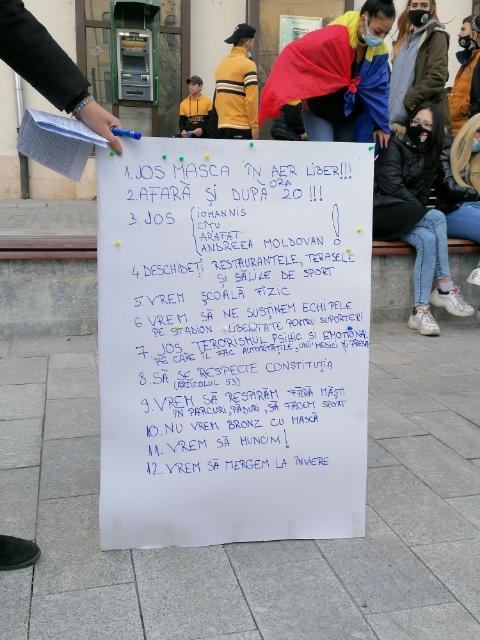 1. JOS MASCA ÎN AER LIBER!!!
2. AFARĂ ȘI DUPĂ ORA 20 !!!
3. JOS
IOHANNIS
CÎȚU
ARAFAT
ANDREEA MOLDOVAN !
4. DESCHIDEȚI RESTAURANTELE, TERASELE
ȘI SĂLILE DE SPORT
5. VREM ȘCOALĂ FIZIC
6. VREM SĂ NE SUSȚINEM ECHIPELE
PE STADION LIBERTATE PENTRU SUPORTERI
7. JOS TERORISMUL PSIHIC SI EMOȚIONAL
PE CARE ÎL FAC AUTORITĂȚILE, UNII MEDICI ȘI PRESA
8. SĂ SE RESPECTE CONSTITUȚIA
(ARTICOLUL 53)
9. VREM SĂ RESPIRĂM FĂRĂ MĂȘTI
ÎN PARCURI, PĂDURI, SĂ FACEM SPORT
10. NU VREM BRONZ CU MASCĂ
11. VREM SĂ MUNCIM!
12. VREM SĂ MERGEM LA ÎNVIERE